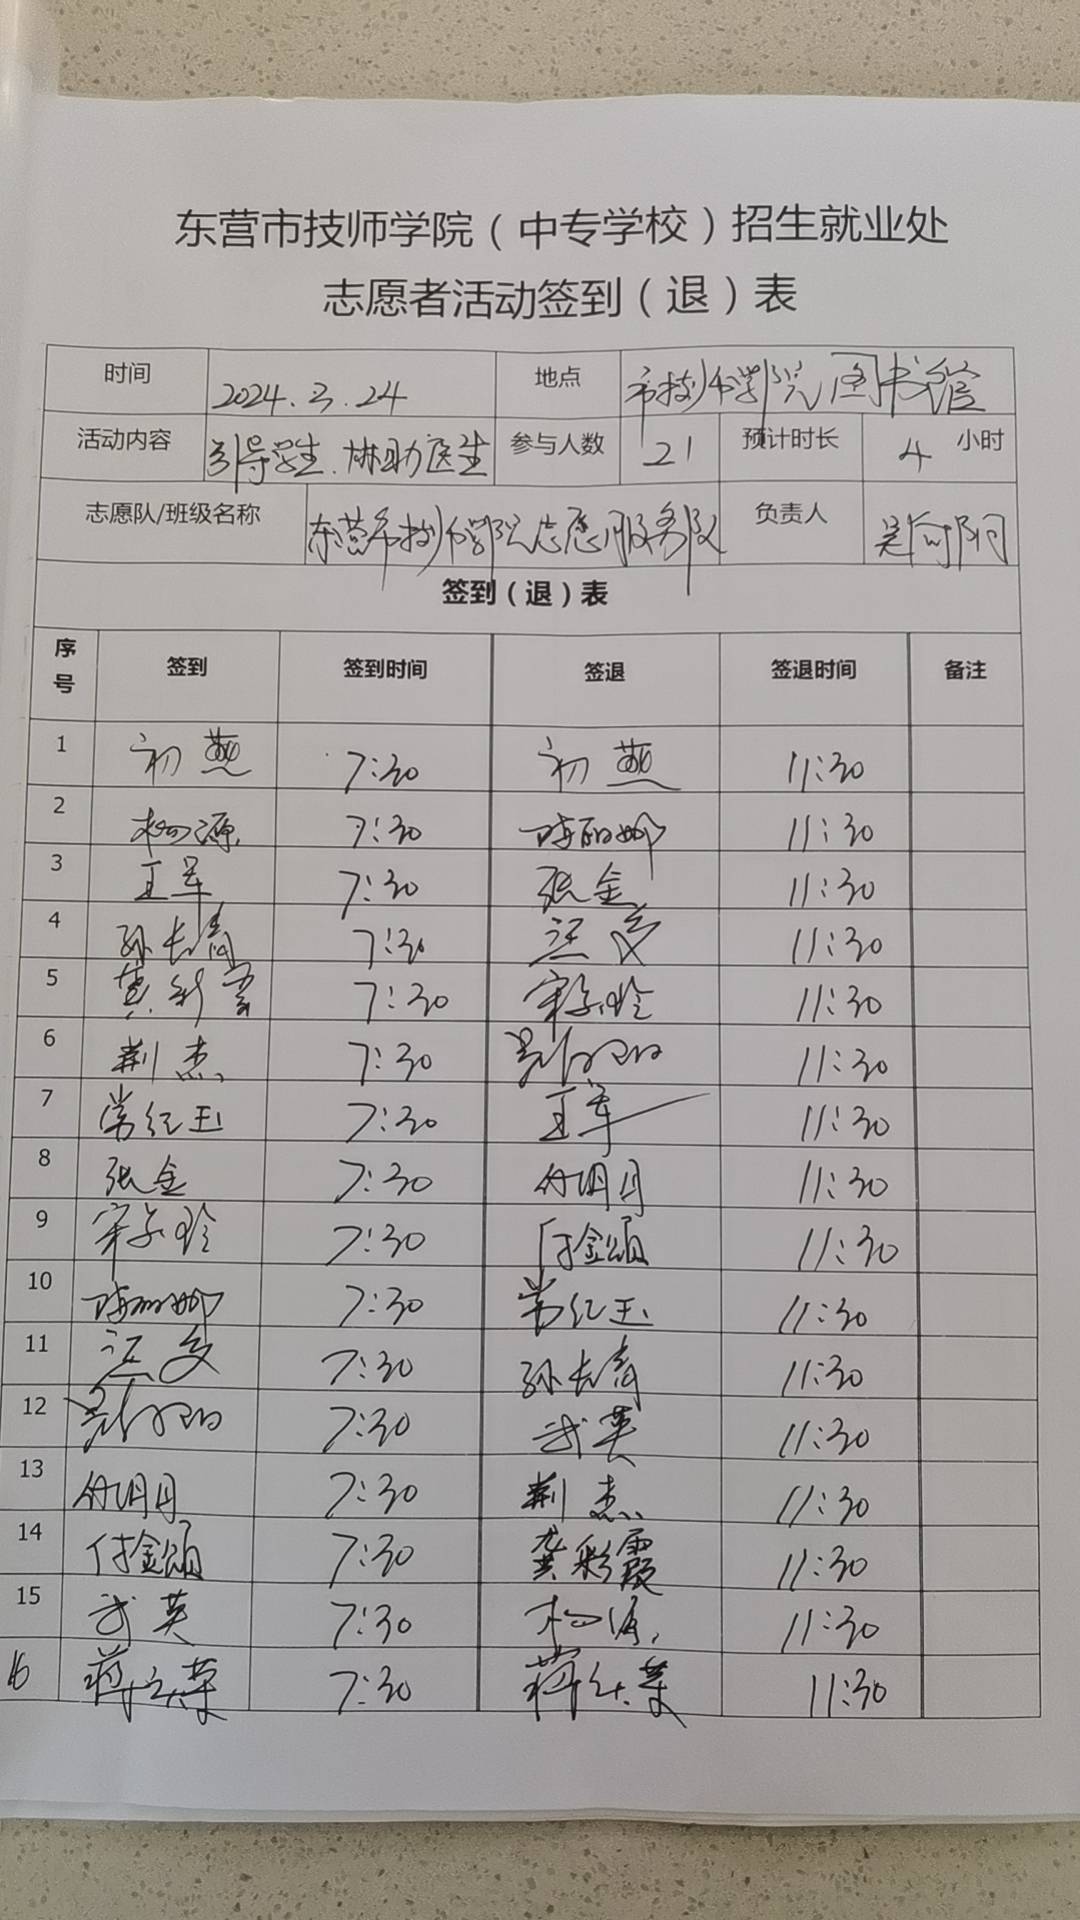 东营市技师学院（中专学校）招生就业处
志愿者活动签到（退）表
时间 2024.3.24 地点 市技师学院图书馆
活动内容 引导学生、协助医生 参与人数 21 预计时长 4 小时
志愿队/班级名称 东营市技师学院志愿服务队 负责人
签到（退）表
序号 签到 签到时间 签退 签退时间 备注
1 初燕 7:30 初燕 11:30
2 7:30 11:30
3 王军 7:30 张金 11:30
4 孙长青 7:30 11:30
5 7:30 11:30
6 荆杰 7:30 11:30
7 常红玉 7:30 王军 11:30
8 张金 7:30 付明月 11:30
9 7:30 付金颂 11:30
10 7:30 常红玉 11:30
11 7:30 孙长青 11:30
12 7:30 武英 11:30
13 付明月 7:30 荆杰 11:30
14 付金颂 7:30 龚彩霞 11:30
15 武英 7:30 11:30
16 7:30 11:30